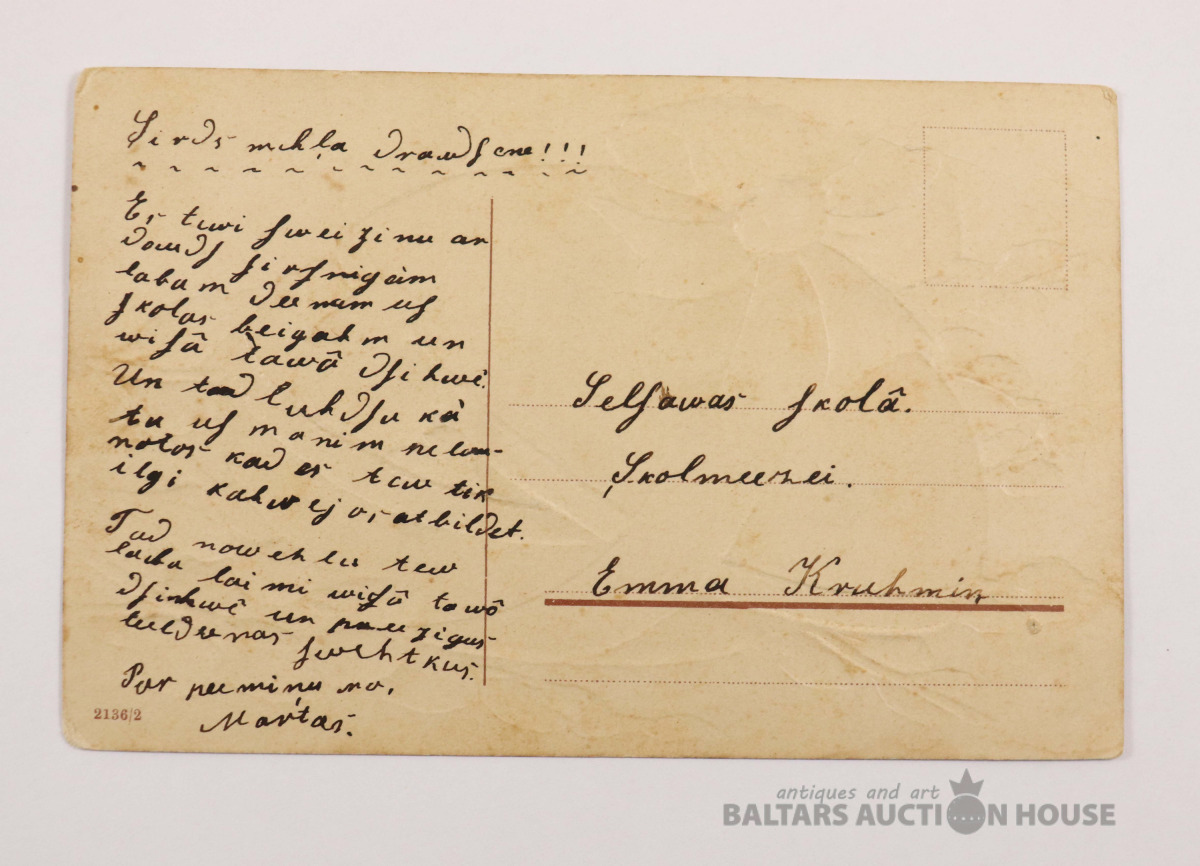 Sirds mihļa drawdſene!!!
Es tewi ſweizinu ar
daudſ ſirſnigām
labam deenam uſ
ſkolas beigahm un
wiſâ tawâ dſihwê.
Un tad luhdſu kà
tu uſ manim nelau-
notos kad es tew tik
ilgi kahwejos atbildet.
Tad nowehlu tew
laba laimi wiſâ tawâ
dſihwê un preezigus
leeldeenas ſwehtkus.
Par peemiņu no.
Martas.
2136/2
Selſawas ſkolâ.
Skolneezei.
Emma Kruhmin
antiques and art
BALTARS AUCTION HOUSE